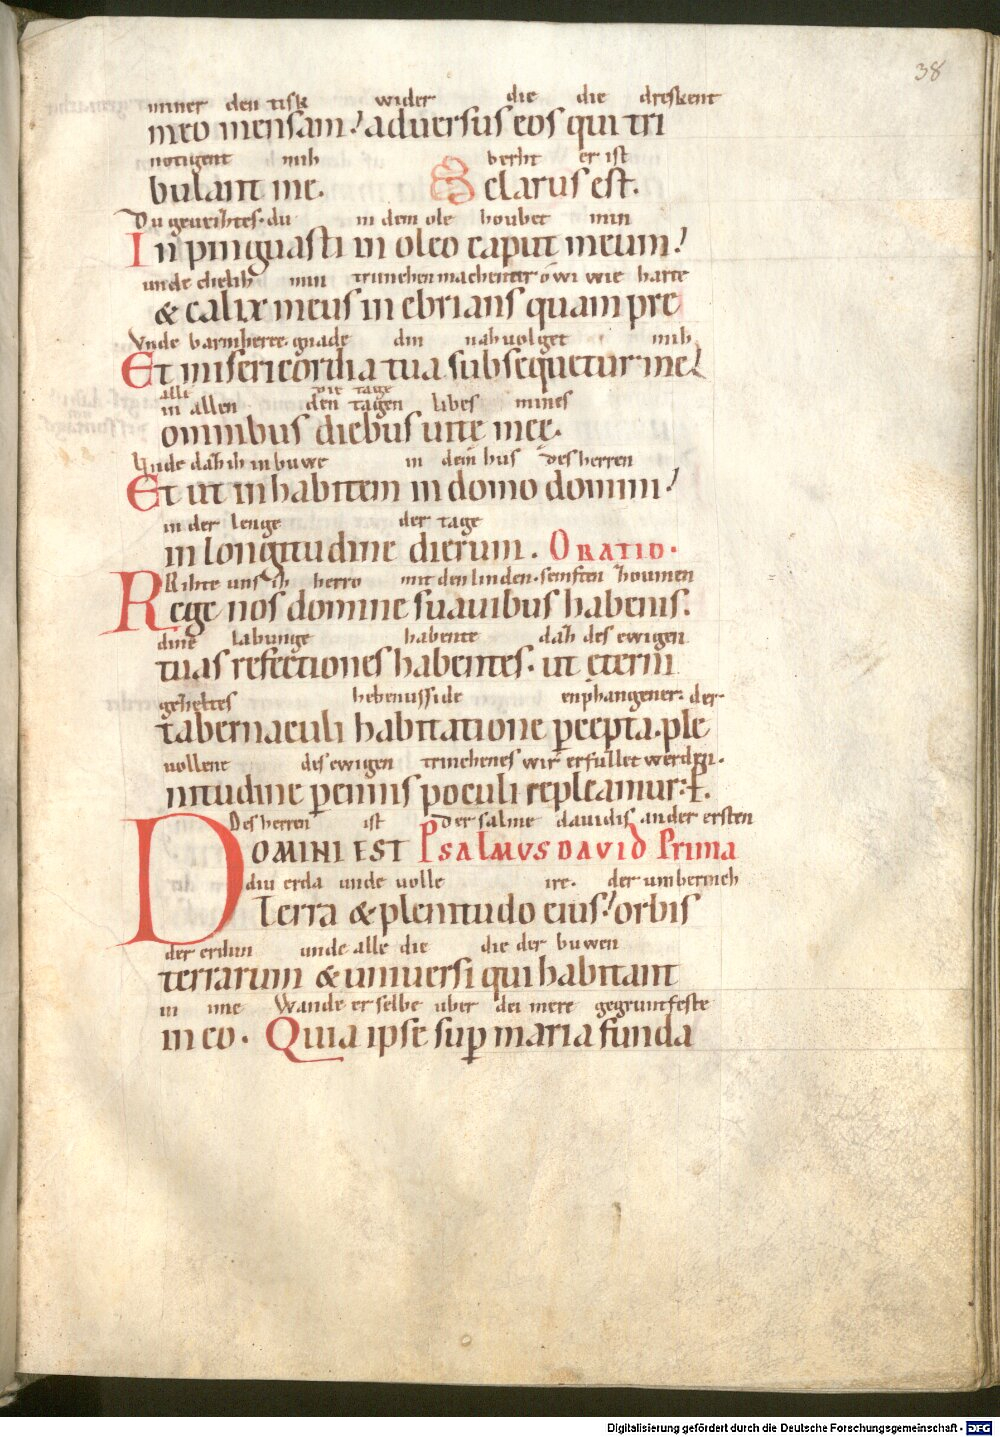 38
miner den tisk wider die die dreskent
meo mensam! aduersus eos qui tri
notigent mih berht er ist
bulant me. clarus est.
Du geueihtes du in dem ole houbet min
Inpinguasti in oleo caput meum!
unde chelih min trunchen machenter ówi wie harte
& calix meus inebrians quam pre
Vnde barmherce gnade din nahuolget mih
Et misericordia tua subsequetur me
alle die tage
in allen den tagen libes mines
omnibus diebus uitę meę.
Vnde dah ih inbuwe in dem hus des herren
Et ut inhabitem in domo domini!
in der lenge der tage
in longitudine dierum. ORATIO.
Rihte uns ih herro mit den linden. semften houmen
Rege nos domine suauibus habenis.
dine labunge habente dah des ewigen
tuas refectiones habentes. ut ęterni
geheltes hebenusside enphangener. der
tabernaculi habitatione pcepta. ple
uollene des ewigen trinchenes wir erfullet werden.
nitudine pennis poculi repleamur: p.
Des herren ist Der salme dauidis an der ersten
DOMINI EST PSALMUS DAVID Prima
diu erda unde uolle ire. der umberinch
Terra & plenitudo eius! orbis
der erdun unde alle die die der buwen
terrarum & uniuersi qui habitant
in ime Wande er selbe uber dei mere gegruntfeste
in eo. Quia ipse sup maria funda
Digitalisierung gefördert durch die Deutsche Forschungsgemeinschaft - DFG